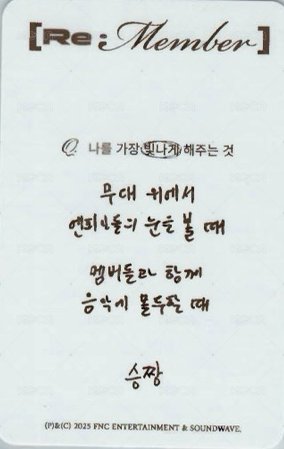 [Re:Member]
Q. 나를 가장 빛나게 해주는 것
무대 위에서
엔피아들의 눈을 볼 때
멤버들과 함께
음악에 몰두할 때
승짱
(P)&(C) 2025 FNC ENTERTAINMENT & SOUNDWAVE.